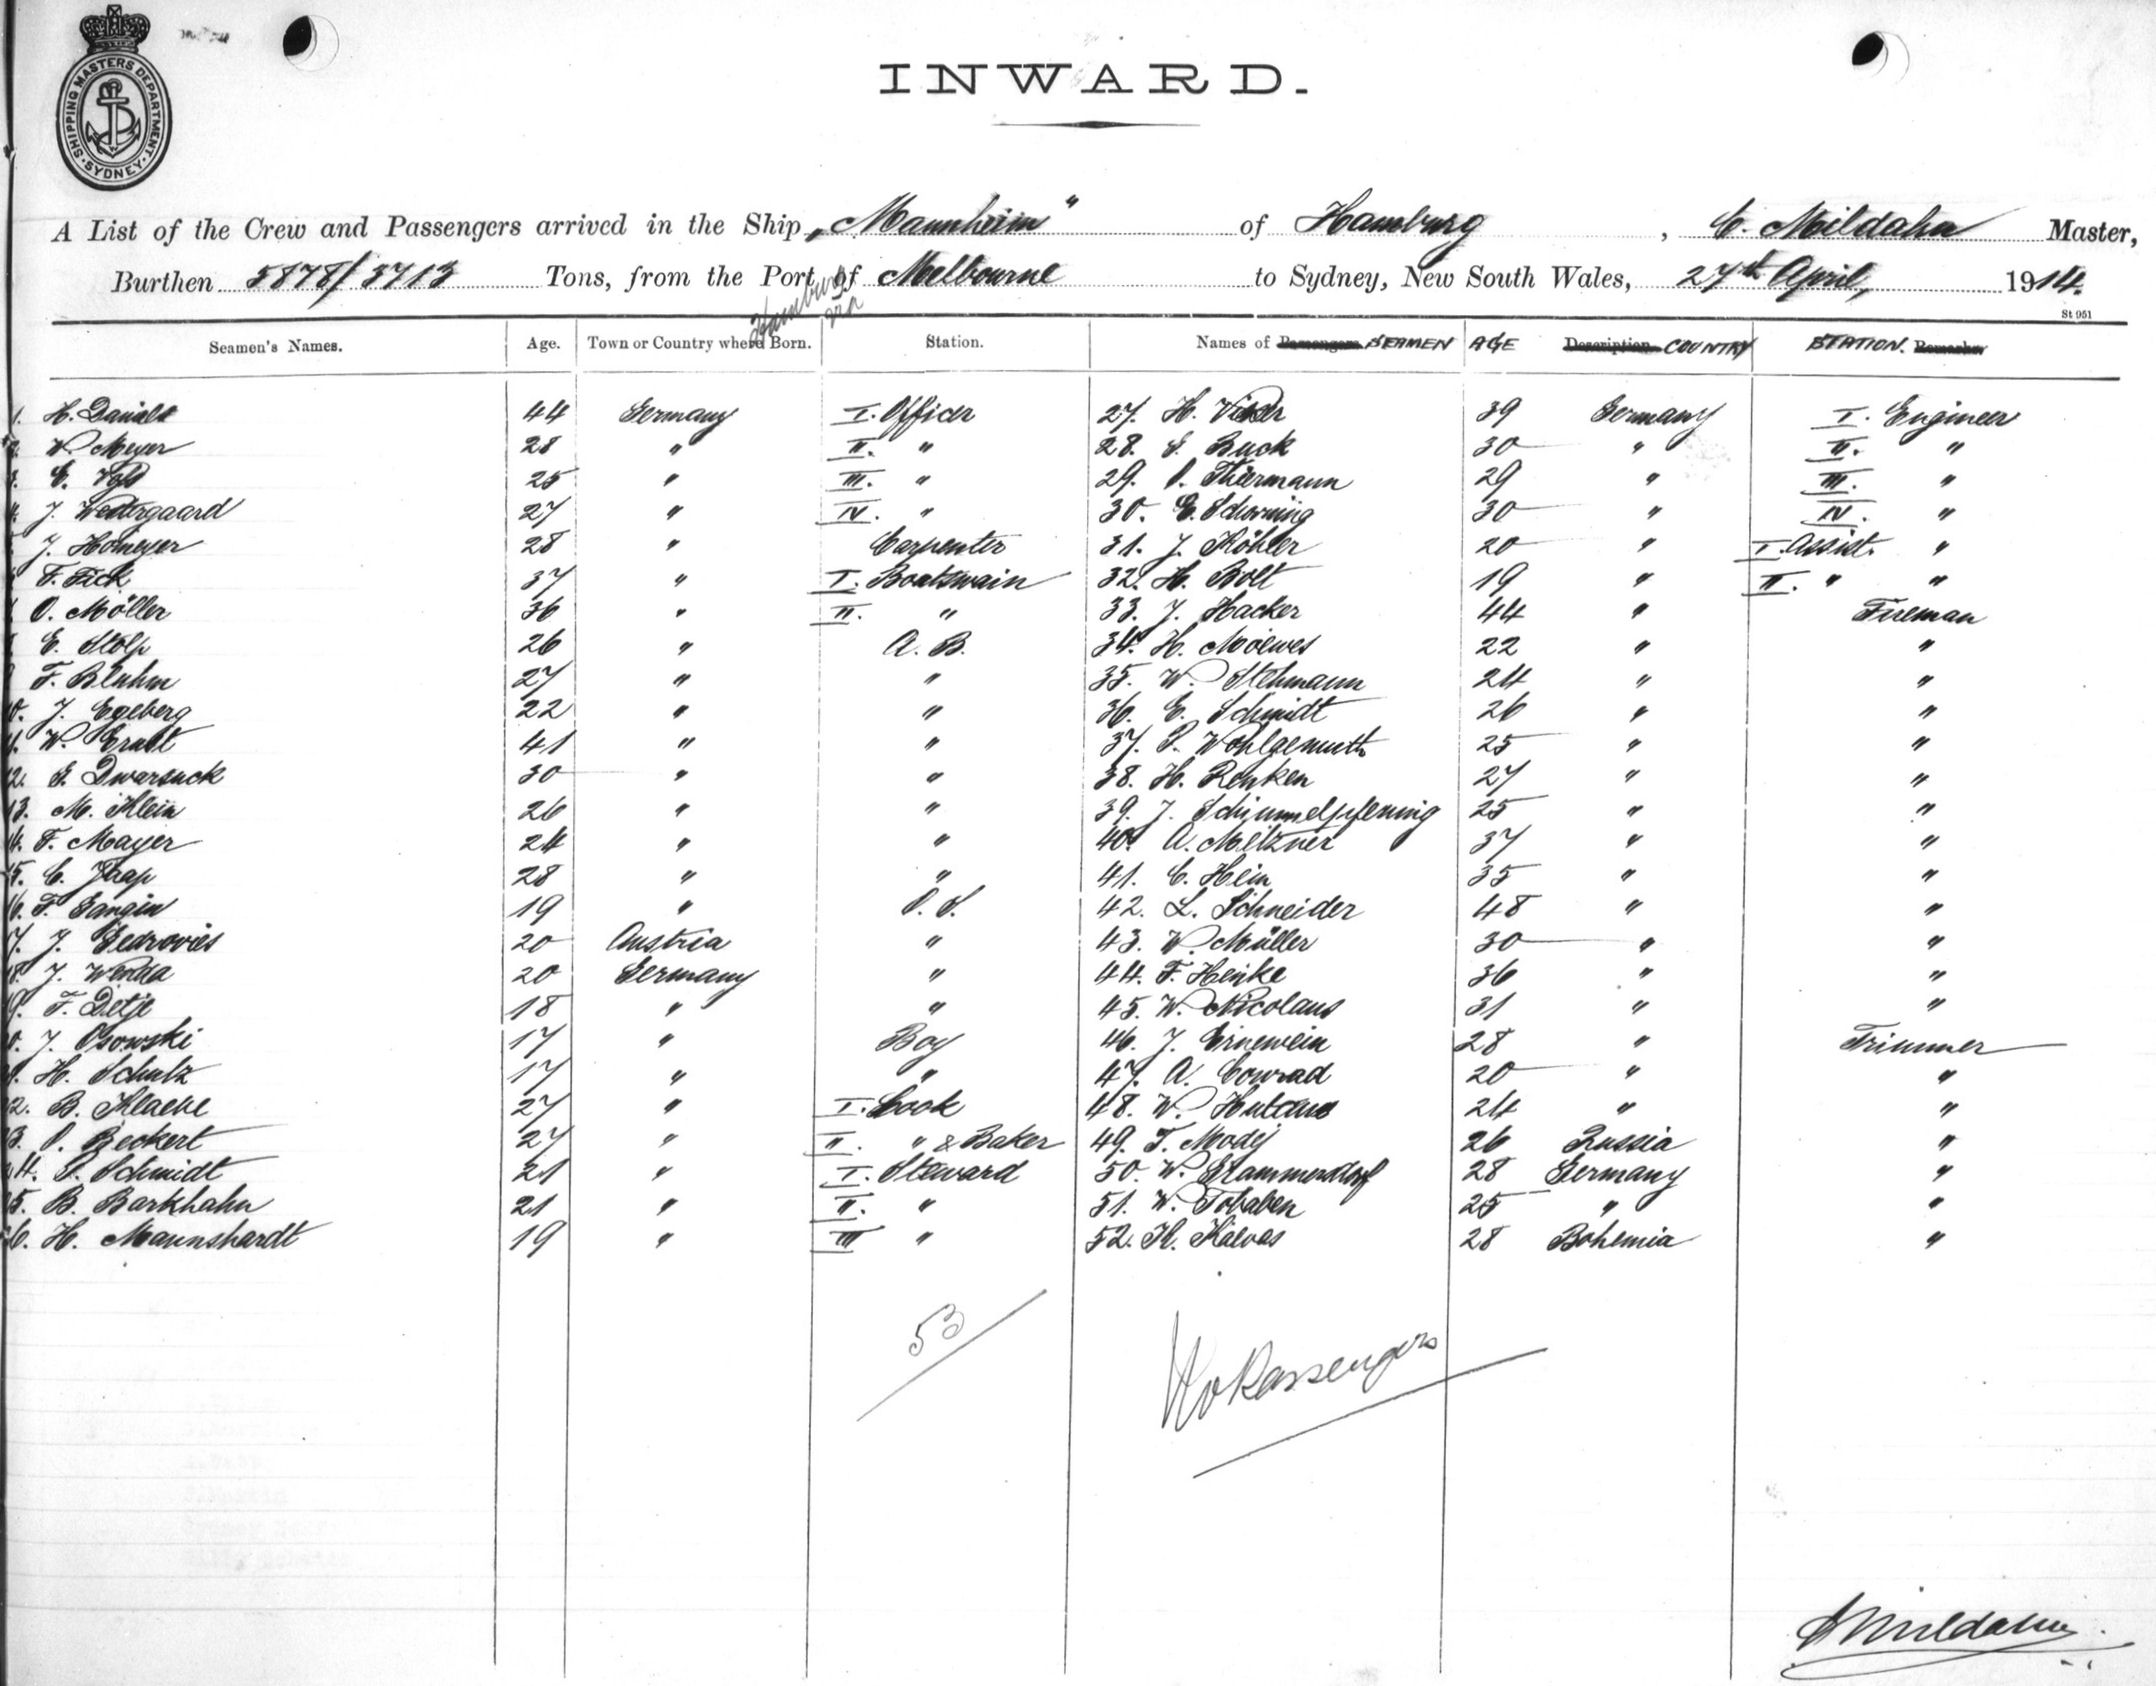 SHIPPING MASTERS DEPARTMENT · SYDNEY ·
INWARD.
A List of the Crew and Passengers arrived in the Ship „Mannheim" of Hamburg, C. Mildahn Master,
Burthen 5878/3713 Tons, from the Port of Hamburg via Melbourne to Sydney, New South Wales, 27th April, 1914.
St 951
Seamen's Names. Age. Town or Country where Born. Station. Names of Passengers SEAMEN AGE Description COUNTRY STATION. Remarks
1. H. 44 Germany I. Officer 27. H. 39 Germany I. Engineer
2. W. Meyer 28 " II. " 28. G. Buck 30 " II. "
3. E. Voß 25 " III. " 29. O. Thiermann 29 " III. "
4. J. Westergaard 27 " IV. " 30. E. 30 " IV. "
5. J. Homeyer 28 " Carpenter 31. J. Köhler 20 " I. Assist. "
6. F. Fick 37 " I. Boatswain 32. H. Bolt 19 " II. " "
7. O. Möller 36 " II. " 33. J. Hacker 44 " Fireman
8. E. Stolp 26 " A. B. 34. H. Moewes 22 " "
9. F. Bluhm 27 " " 35. W. Stehmann 24 " "
10. J. Egeberg 22 " " 36. E. Schmidt 26 " "
11. W. Ernst 41 " " 37. P. Wohlgemuth 25 " "
12. G. Dwarsuck 30 " " 38. H. Renken 27 " "
13. M. Klein 26 " " 39. J. Schimmelpfennig 25 " "
14. F. Mayer 24 " " 40. A. Meltzner 37 " "
15. C. Jaap 28 " " 41. C. Hein 35 " "
16. F. Gangin 19 " O. S. 42. L. Schneider 48 " "
17. J. 20 Austria " 43. W. Müller 30 " "
18. J. Wenda 20 Germany " 44. F. Henke 36 " "
19. F. Detje 18 " " 45. W. Nicolaus 31 " "
20. J. Osowski 17 " Boy 46. J. Ernewein 28 " Trimmer
21. H. Schulz 17 " " 47. A. Conrad 20 " "
22. B. 27 " I. Cook 48. W. 24 " "
23. O. Beckert 27 " II. " & Baker 49. T. 26 Russia "
24. P. Schmidt 21 " I. Steward 50. W. 28 Germany "
25. B. Barkhahn 21 " II. " 51. W. Tobaben 25 " "
26. H. Mannshardt 19 " III " 52. K. 28 Bohemia "
53
No Passengers
C Mildahn